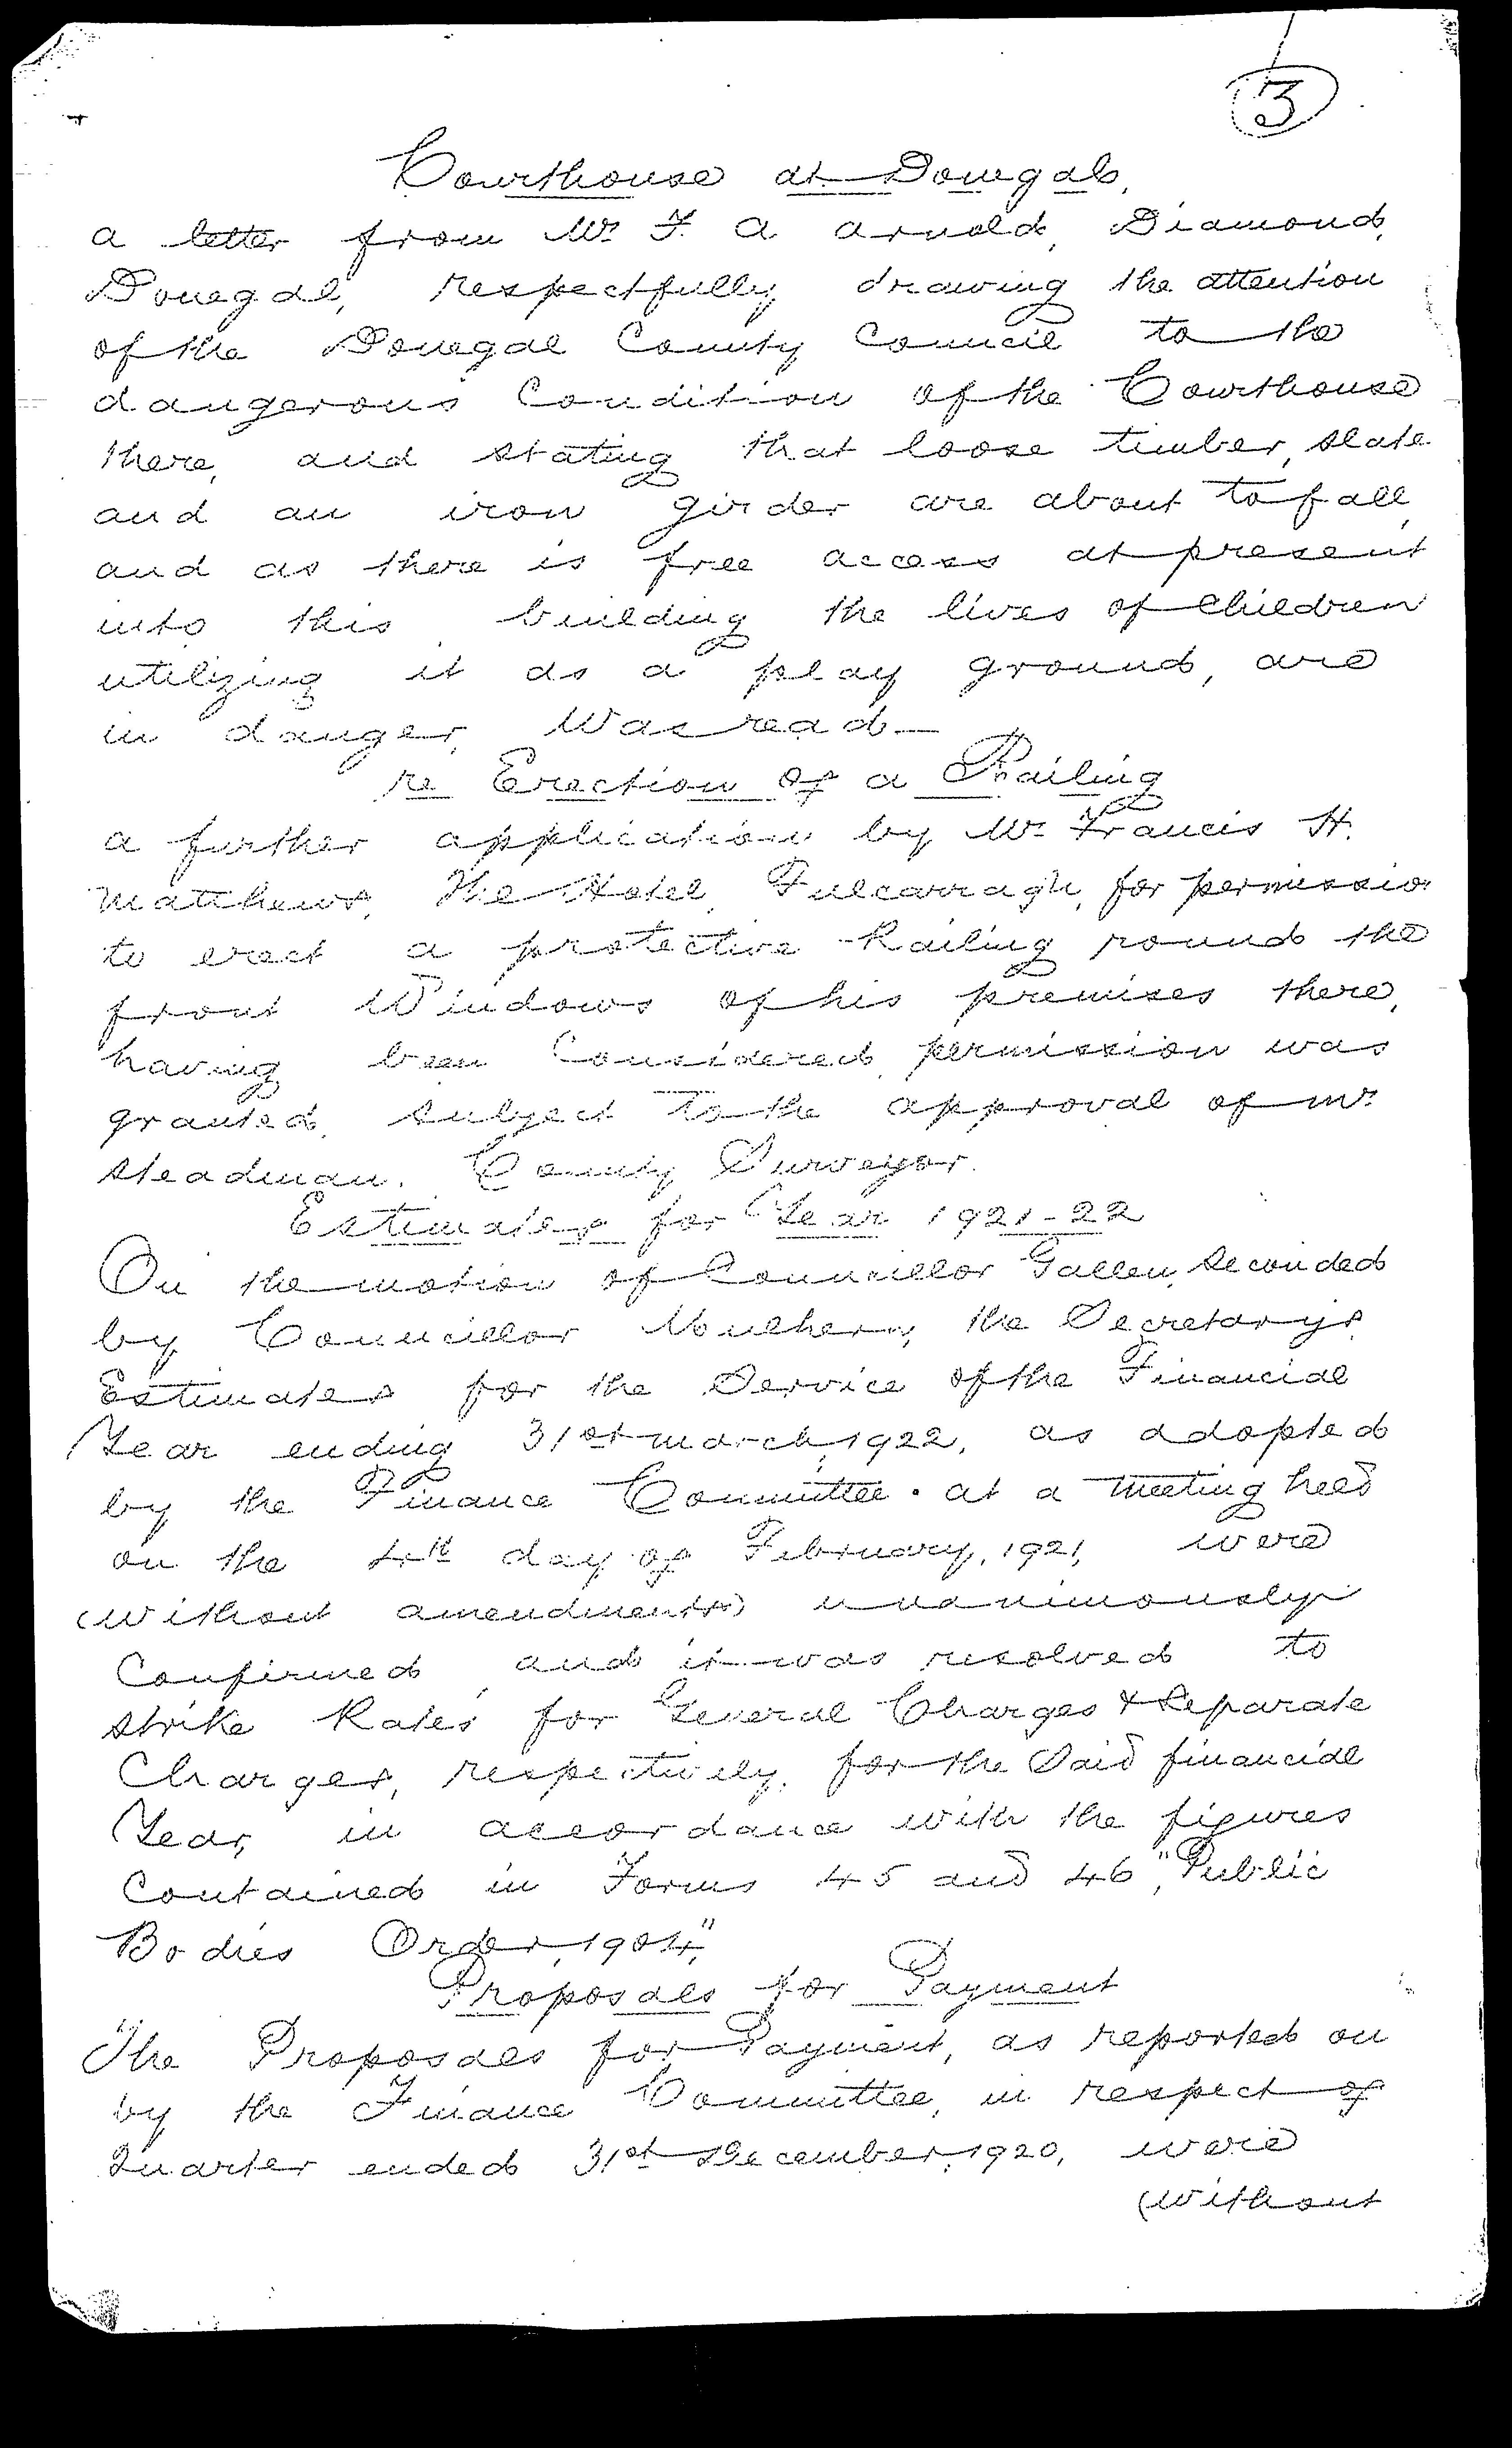 3
Courthouse at Donegal,
a letter from Mr F. A arnold, Diamond,
Donegal, respectfully drawing the attention
of the Donegal County Council to the
dangerous Condition of the Courthouse
there, and stating that loose timber, slate
and an iron girder are about to fall,
and as there is free access at present
into this building the lives of Children
utilizing it as a play ground, are
in danger, was read—
re Erection of a Railing
a further application by Mr Francis H.
Matthews, The Hotel, Falcarragh, for permission
to erect a protective Railing round the
front Windows of his premises there,
having been Considered, permission was
granted, subject to the approval of Mr
Steadman. County Surveyor.
Estimates for Year 1921-22
On the motion of Councillor Gallen, Seconded
by Councillor Mulhern, the Secretary's
Estimates for the Service of the Financial
Year ending 31st March, 1922, as adopted
by the Finance Committee. at a Meeting held
on the 4th day of February, 1921, were
(without amendments) unanimously
Confirmed, and it was resolved to
strike Rates for General Charges & Separate
Charges, respectively, for the Said financial
Year, in accordance with the figures
Contained in Forms 45 and 46, "Public
Bodies Order, 1904,"
Proposals for Payment
The Proposals for Payment, as reported on
by the Finance Committee, in respect of
Quarter ended 31st December, 1920, were
(without